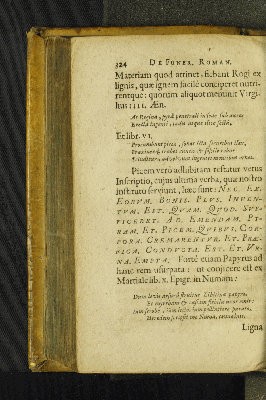 324 DE FUNER. ROMAN.
Materiam quod attinet, fiebant Rogi ex
lignis, quæ ignem facilè conciperet nutri-
rentque: quorum aliquot meminit Virgi-
lius IIII. Æn.
At Regina, pyra penetrali in sede sub auras
Erecta ingenti, tædis atque ilice secta,
Et libr. VI.
Procumbunt piceæ, sonat icta securibus ilex,
Fraxineæque trabes cuneis & fissile robur
Scinditur: advolvunt ingentes montibus ornos.
Picem verò adhibitam testatur vetus
Inscriptio, cujus ultima verba, quæ nostro
instituto serviunt, hæc sunt: NEC. EX.
EORUM. BONIS. PLUS. INVEN-
TUM. EST. QUAM. QUOD. SUF-
FICERET. AD. EMENDAM. PY-
RAM. ET. PICEM. QUIBUS. COR-
PORA. CREMARENTUR. ET. PRÆ-
FICA. CONDUCTA. EST. ET. UR-
NA. EMPTA. Fortè etiam Papyrus ad
hanc rem usurpata: ut conjicere est ex
Martiale lib. X. Epigr. in Numam:
Dum levis arsura struitur Libitina papyro,
Et myrrham & casiam flebilis uxor emit:
Ligna